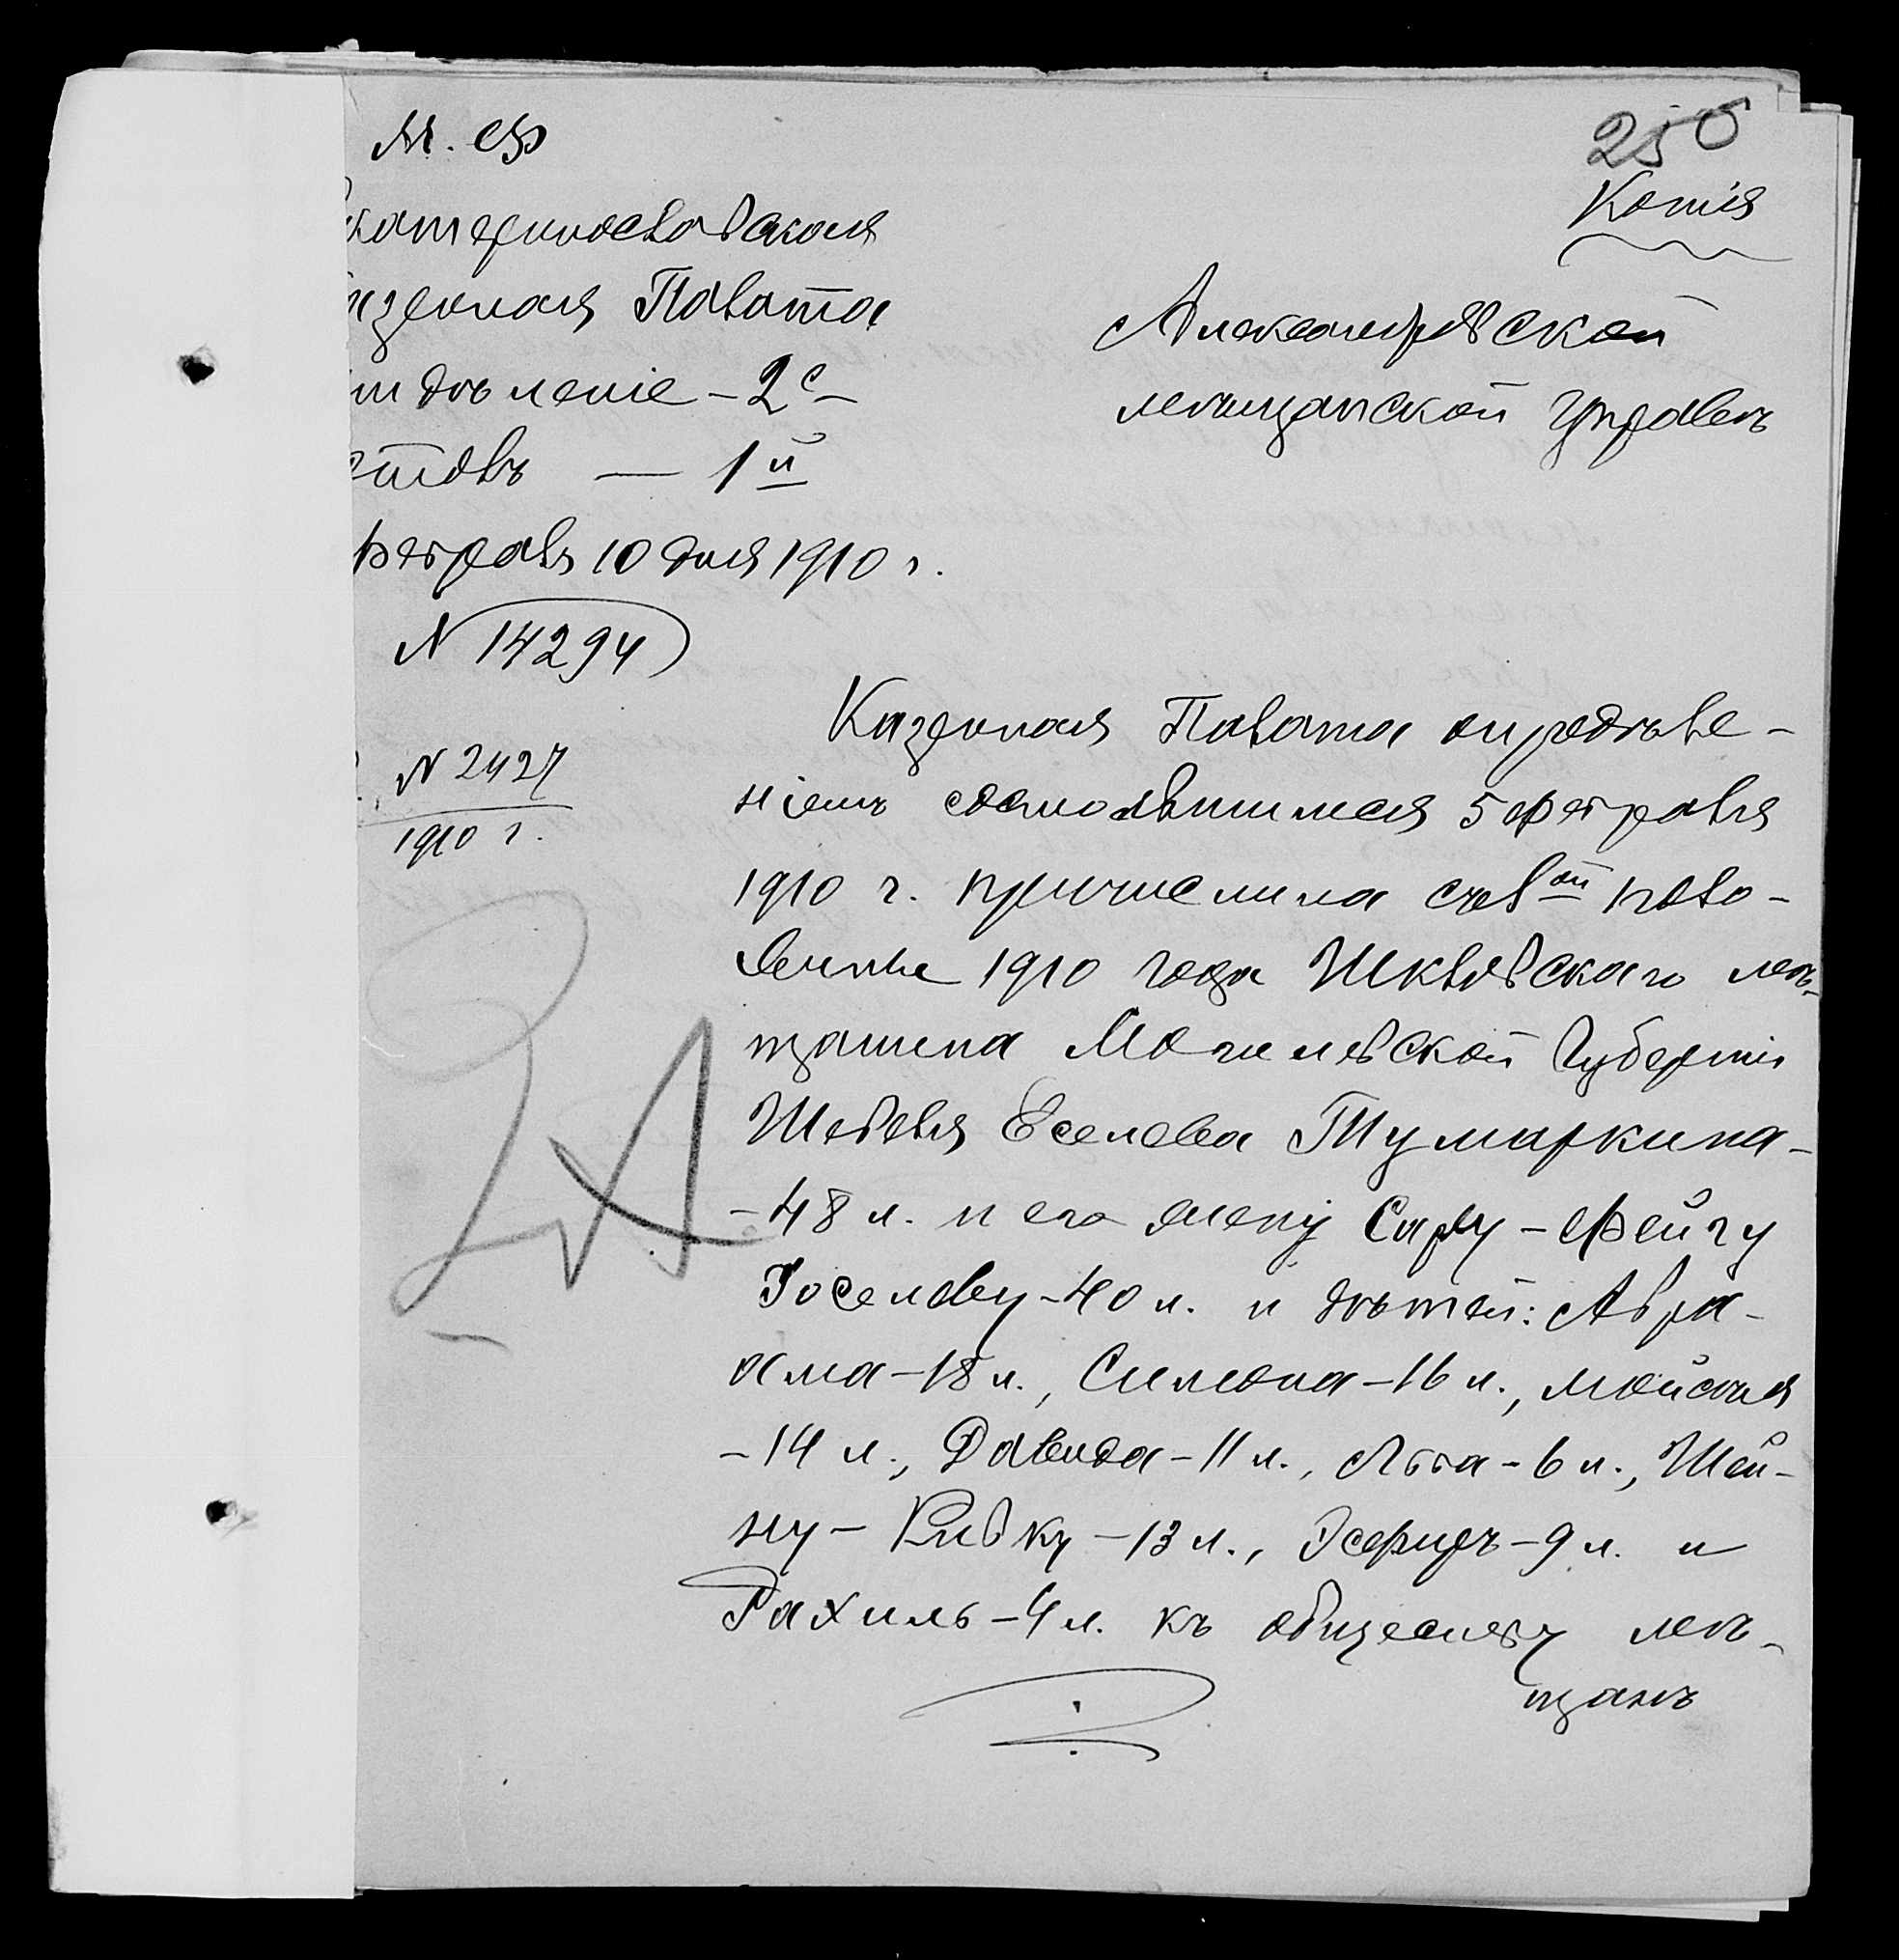 250
Копія
М. Ф
катеринославская
азенная Палата
тдѣленіе – 2е –
столъ — 1й
Февраля 10 дня 1910 г.
N 14294
N 2427
1910 г.
Александровской
мѣщанской Управѣ
Казенная Палата опредѣле-
ніемъ состоявшимся 5 февраля
1910 г. причислила съ 1ой поло-
вины 1910 года Шкловскаго мѣ-
щанина Могилевской губерніи
Шевеля Еселева Тумаркина –
– 48 л. и его жену Сару – Фейгу
Іоселеву – 40 л. и дѣтей: Авра-
ама – 18 л., Симона – 16 л., Мойсея
– 14 л., Давида – 11 л., Лева – 6 л., Шей-
ну – Ривку – 13 л., Эсфирь – 9 л. и
Рахиль – 4 л. къ обществу мѣ-
щанъ